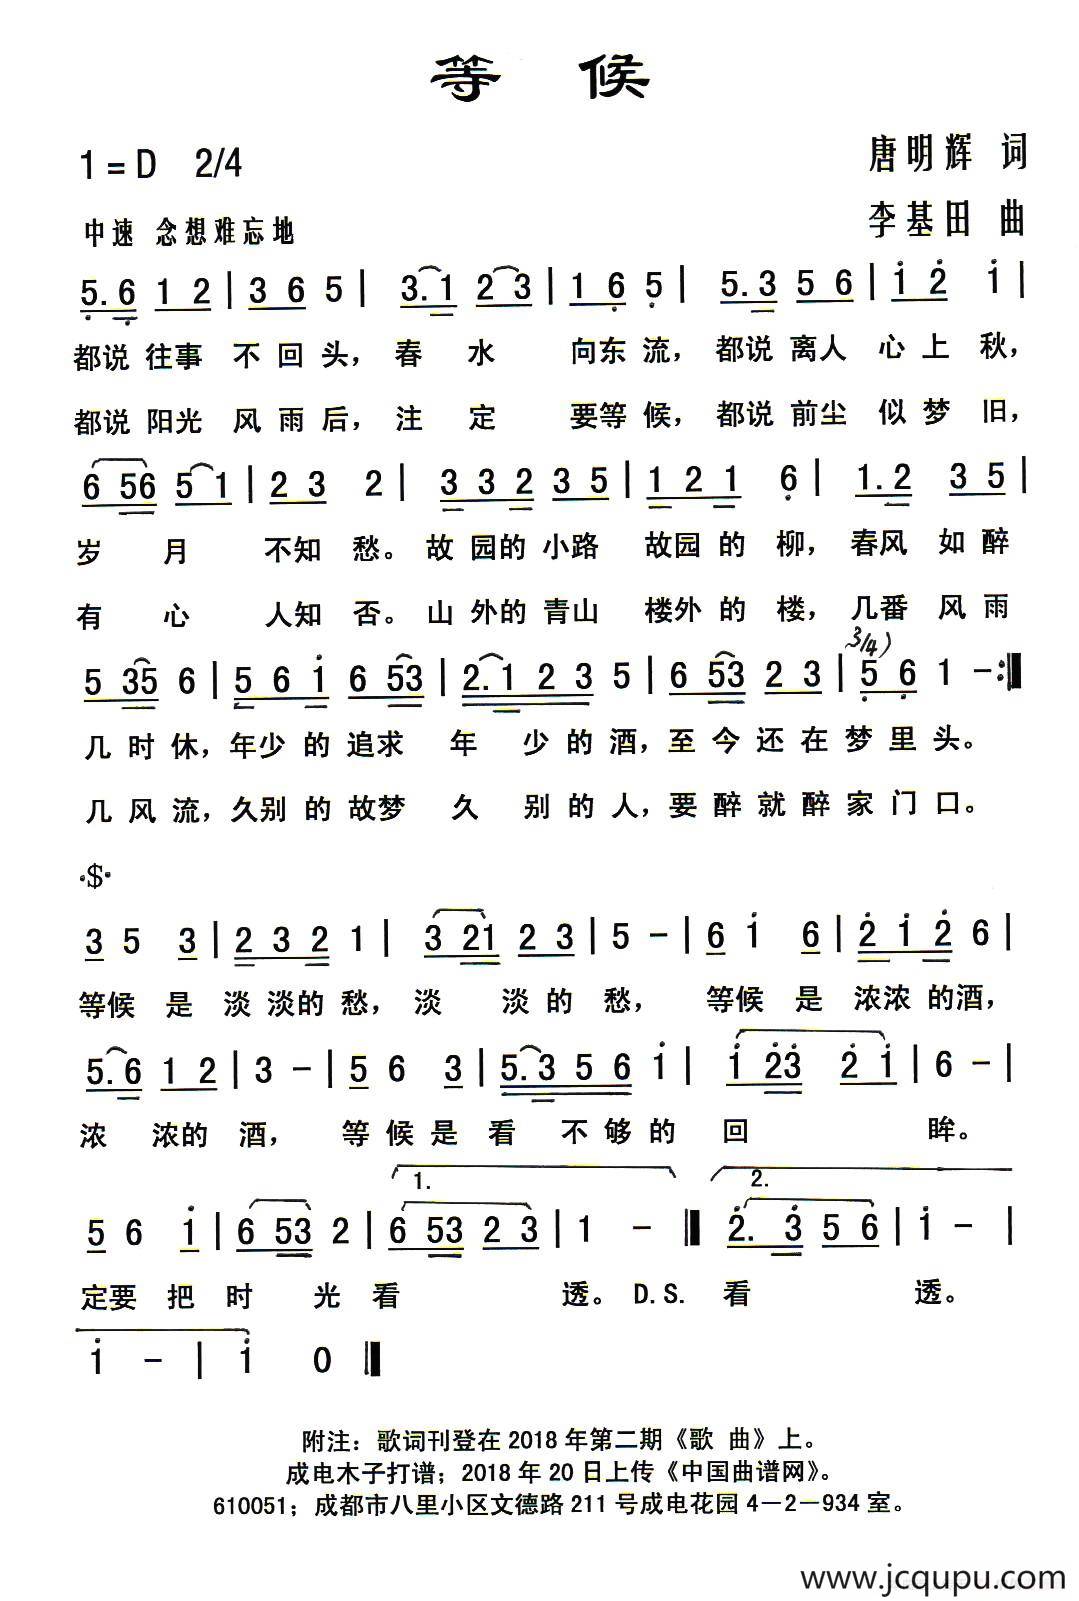 等 候
1=D 2/4
唐明辉 词
中速 念想难忘地
李基田 曲
5.6 1 2 | 3 6 5 | 3.1 2 3 | 1 6 5 | 5.3 5 6 | 1 2 1 |
都说 往事 不 回 头， 春 水 向东 流， 都说 离人 心 上 秋，
都说 阳光 风 雨 后， 注 定 要等 候， 都说 前尘 似 梦 旧，
6 56 5 1 | 2 3 2 | 3 3 2 3 5 | 1 2 1 6 | 1.2 3 5 |
岁 月 不知 愁。 故 园的 小路 故园 的 柳， 春风 如 醉
有 心 人知 否。 山 外的 青山 楼外 的 楼， 几番 风 雨
3/4)
5 35 6 | 5 6 1 6 53 | 2.1 2 3 5 | 6 53 2 3 | 5 6 1 - :‖
几 时 休，年少 的 追求 年 少 的 酒，至 今 还 在 梦 里 头。
几 风 流，久别 的 故梦 久 别 的 人，要 醉 就 醉 家 门 口。
·$·
3 5 3 | 2 3 2 1 | 3 21 2 3 | 5 - | 6 1 6 | 2 1 2 6 |
等候 是 淡 淡的 愁， 淡 淡 的 愁， 等候 是 浓浓 的酒，
5.6 1 2 | 3 - | 5 6 3 | 5.3 5 6 1 | 1 23 2 1 | 6 - |
浓 浓的 酒， 等 候 是 看 不 够 的 回 眸。
1. 2.
5 6 1 | 6 53 2 | 6 53 2 3 | 1 - ‖ 2. 3 5 6 | 1 - |
定要 把 时 光 看 透。 D.S. 看 透。
1 - | 1 0 ‖
附注：歌词刊登在 2018 年第二期《歌 曲》上。
成电木子打谱；2018 年 20 日上传《中国曲谱网》。
610051；成都市八里小区文德路 211 号成电花园 4－2－934 室。
www.jcqupu.com